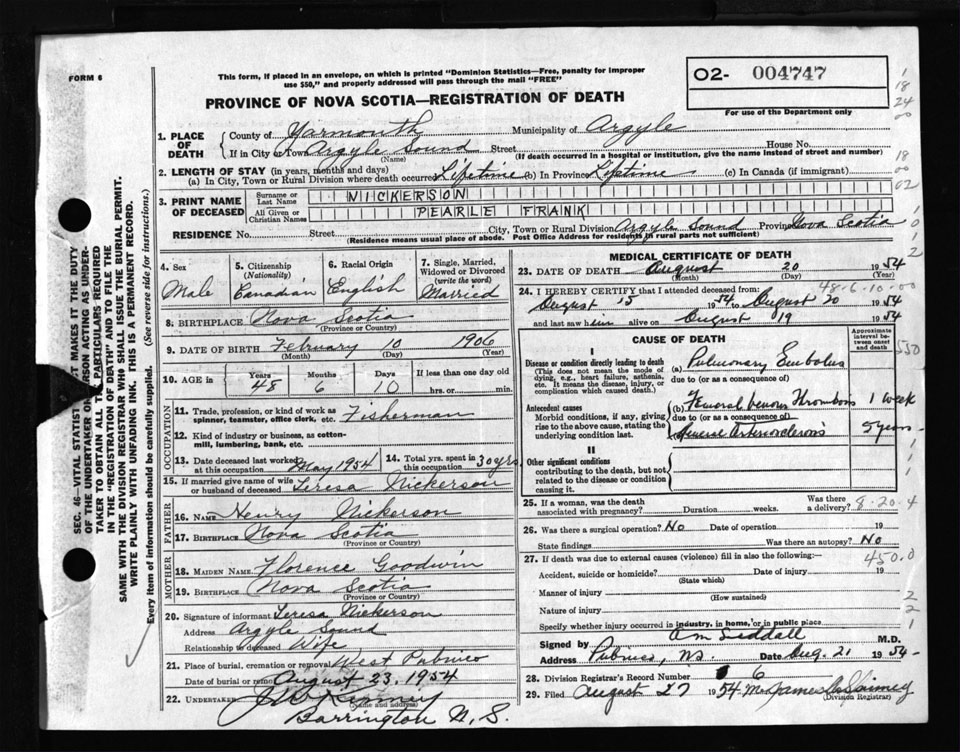 FORM 6
This form, if placed in an envelope, on which is printed "Dominion Statistics—Free, penalty for improper
use $50," and properly addressed will pass through the mail "FREE"
PROVINCE OF NOVA SCOTIA—REGISTRATION OF DEATH
O2- 004747
For use of the Department only
1. PLACE OF DEATH
County of Yarmouth Municipality of Argyle
If in City or Town Argyle Sound Street House No.
(Name) (If death occurred in a hospital or institution, give the name instead of street and number)
2. LENGTH OF STAY (in years, months and days)
(a) In City, Town or Rural Division where death occurred Lifetime (b) In Province Lifetime (c) In Canada (if immigrant)
3. PRINT NAME OF DECEASED
Surname or Last Name NICKERSON
All Given or Christian Names PEARLE FRANK
RESIDENCE No. Street City, Town or Rural Division Argyle Sound Province Nova Scotia
(Residence means usual place of abode. Post Office Address for residents in rural parts not sufficient)
4. Sex
Male
5. Citizenship
(Nationality)
Canadian
6. Racial Origin
English
7. Single, Married,
Widowed or Divorced
(write the word)
Married
8. BIRTHPLACE Nova Scotia
(Province or Country)
9. DATE OF BIRTH February 10 1906
(Month) (Day) (Year)
10. AGE in
Years Months Days If less than one day old
48 6 10 hrs. or min.
OCCUPATION
11. Trade, profession, or kind of work as
spinner, teamster, office clerk, etc. Fisherman
12. Kind of industry or business, as cotton-
mill, lumbering, bank, etc.
13. Date deceased last worked
at this occupation May 1954
14. Total yrs. spent in
this occupation 30 yrs.
15. If married give name of wife
or husband of deceased Teresa Nickerson
FATHER
16. Name Henry Nickerson
17. Birthplace Nova Scotia
(Province or Country)
MOTHER
18. MAIDEN NAME Florence Goodwin
19. Birthplace Nova Scotia
(Province or Country)
20. Signature of informant Teresa Nickerson
Address Argyle Sound
Relationship to deceased Wife
21. Place of burial, cremation or removal West Pubnico
Date of burial or removal August 23, 1954
22. UNDERTAKER
(Name and address)
Barrington N. S.
MEDICAL CERTIFICATE OF DEATH
23. DATE OF DEATH August 20 1954
(Month) (Day) (Year)
48-6-10-00
24. I HEREBY CERTIFY that I attended deceased from:
August 15 1954 to August 20 1954
and last saw him alive on August 19 1954
CAUSE OF DEATH
Approximate
interval be-
tween onset
and death
I
Disease or condition directly leading to death
(This does not mean the mode of
dying, e.g., heart failure, asthenia,
etc. It means the disease, injury, or
complication which caused death.)
(a) Pulmonary Embolus
due to (or as a consequence of)
Antecedent causes
Morbid conditions, if any, giving
rise to the above cause, stating the
underlying condition last.
(b) Femoral venous Thrombosis 1 week
due to (or as a consequence of)
Arteriosclerosis 5 years
II
Other significant conditions
contributing to the death, but not
related to the disease or condition
causing it.
25. If a woman, was the death
associated with pregnancy? Duration weeks. Was there
a delivery?
8-20-4
26. Was there a surgical operation? No Date of operation 19
State findings Was there an autopsy? No
27. If death was due to external causes (violence) fill in also the following:—
450.0
Accident, suicide or homicide? Date of injury 19
(State which)
Manner of injury
(How sustained)
Nature of injury
Specify whether injury occurred in industry, in home, or in public place
Signed by M.D.
Address Pubnico, NS Date Aug. 21 1954
28. Division Registrar's Record Number 6
29. Filed August 27 1954 Mrs James
(Division Registrar)
SAME WITH THE DIVISION REGISTRAR WHO SHALL ISSUE THE BURIAL PERMIT.
WRITE PLAINLY WITH UNFADING INK. THIS IS A PERMANENT RECORD.
Every item of information should be carefully supplied. (See reverse side for instructions.)